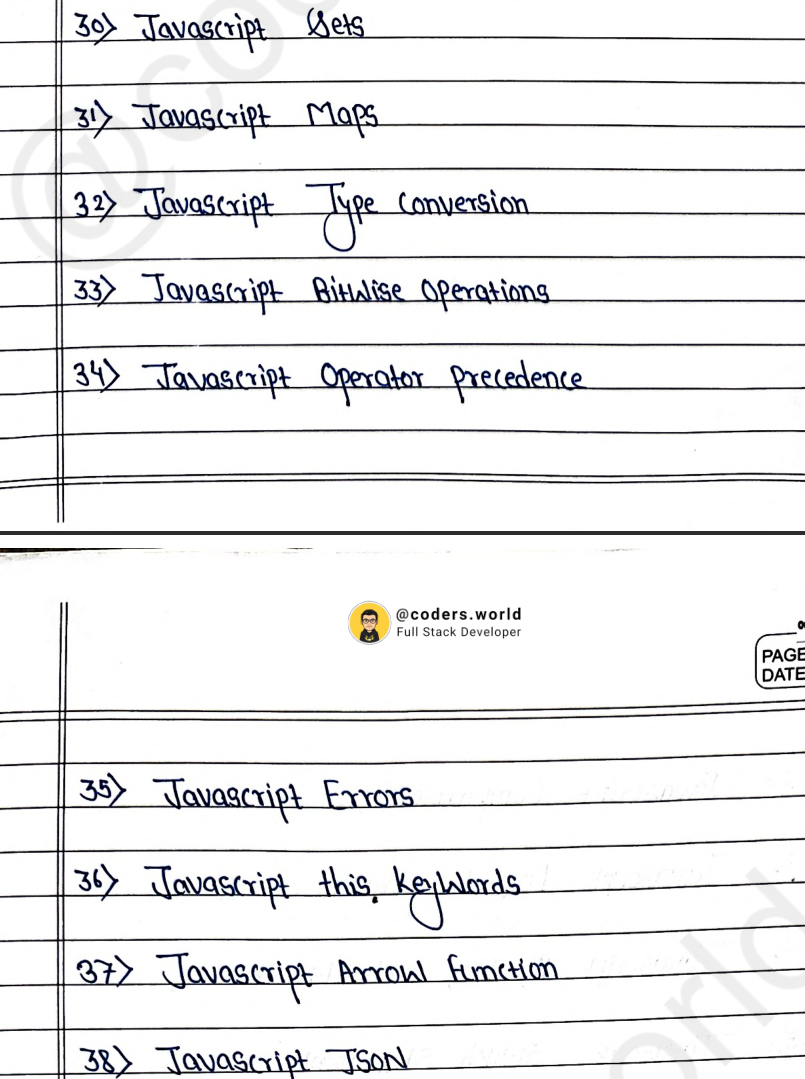 30) Javascript Sets
31) Javascript Maps
32) Javascript Type Conversion
33) Javascript Bitwise Operations
34) Javascript Operator precedence
@coders.world
Full Stack Developer
PAGE
DATE
35) Javascript Errors
36) Javascript this. keywords
37) Javascript Arrow function
38) Javascript JSON